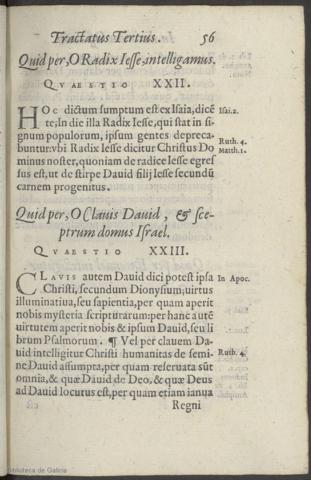 Tractatus Tertius. 56
Quid per, O Radix Iesse, intelligamus.
QVAESTIO XXII.
HOc dictum sumptum est ex Isaia, dicē Isai.2.
te; In die illa Radix Iesse, qui stat in si
gnum populorum, ipsum gentes depreca-
buntur: vbi Radix Iesse dicitur Christus Do Ruth. 4.
minus noster, quoniam de radice Iesse egres Matth.1.
sus est, ut de stirpe Dauid filij Iesse secundū
carnem progenitus.
Quid per, O Clauis Dauid, & sce-
ptrum domus Israel.
QVAESTIO XXIII.
CLAVIS autem Dauid dici potest ipsa In Apoc.
Christi, secundum Dionysium; uirtus
illuminatiua, seu sapientia, per quam aperit
nobis mysteria scripturarum: per hanc autē
uirtutem aperit nobis & ipsum Dauid, seu li
brum Psalmorum. ¶ Vel per clauem Da-
uid intelligitur Christi humanitas de semi- Ruth. 4.
ne Dauid assumpta, per quam reserata sūt
omnia, & quæ Dauid de Deo, & quæ Deus
ad Dauid locutus est, per quam etiam ianua
Regni
Biblioteca de Galicia